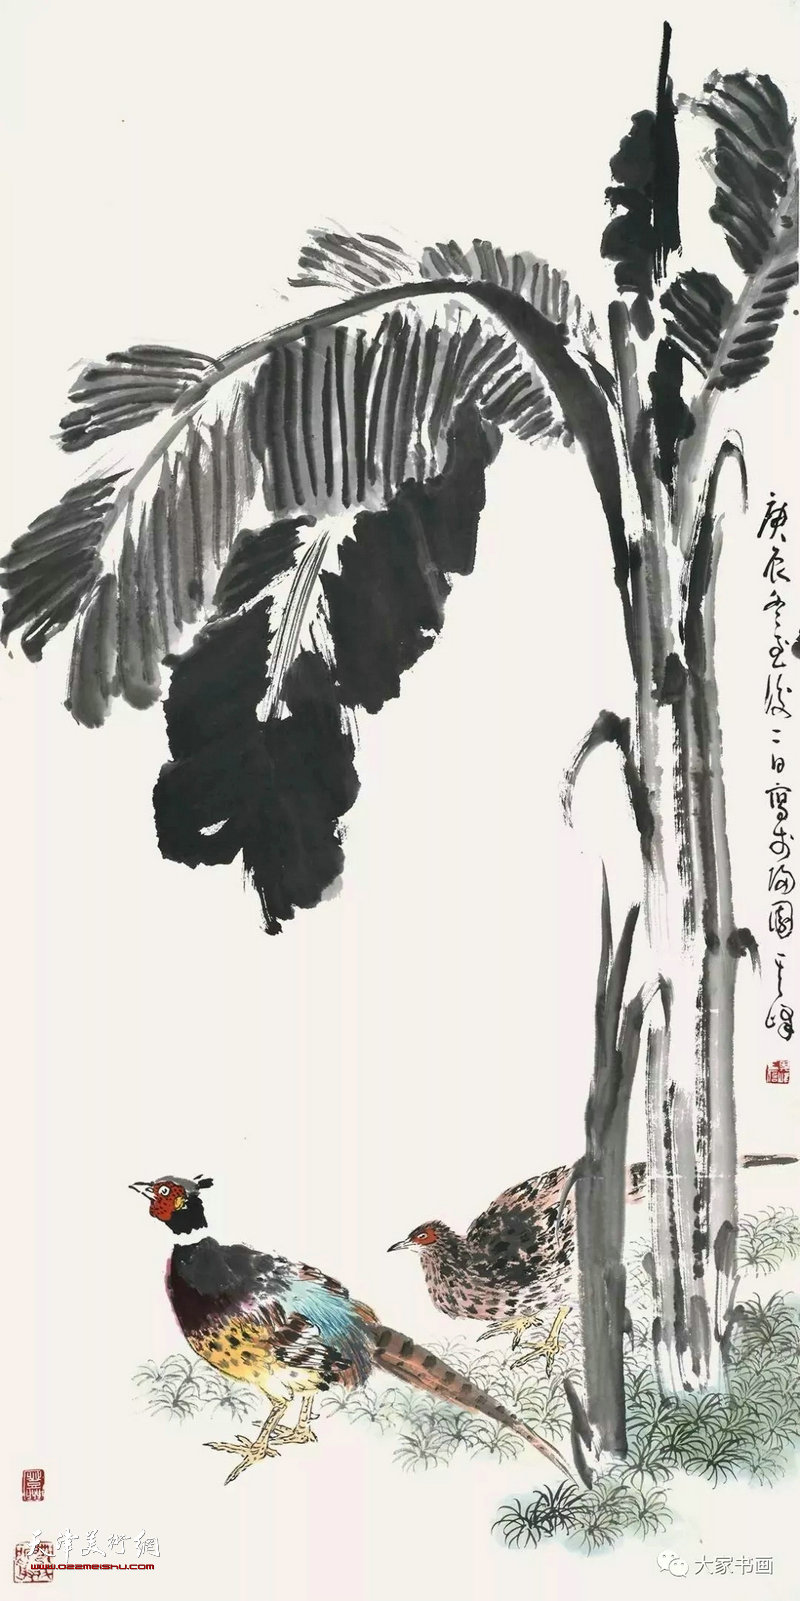 庚辰冬至後二日寫於陽園其峰
天津美術網
www.022meishu.com
大家书画